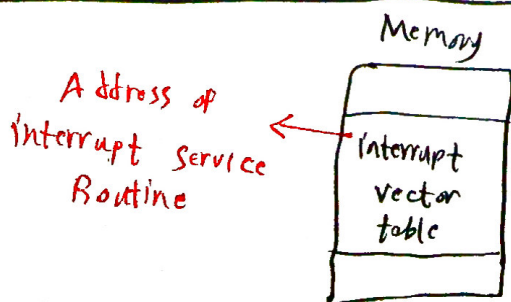 Memory
Address of
interrupt service
Routine
interrupt
vector
table